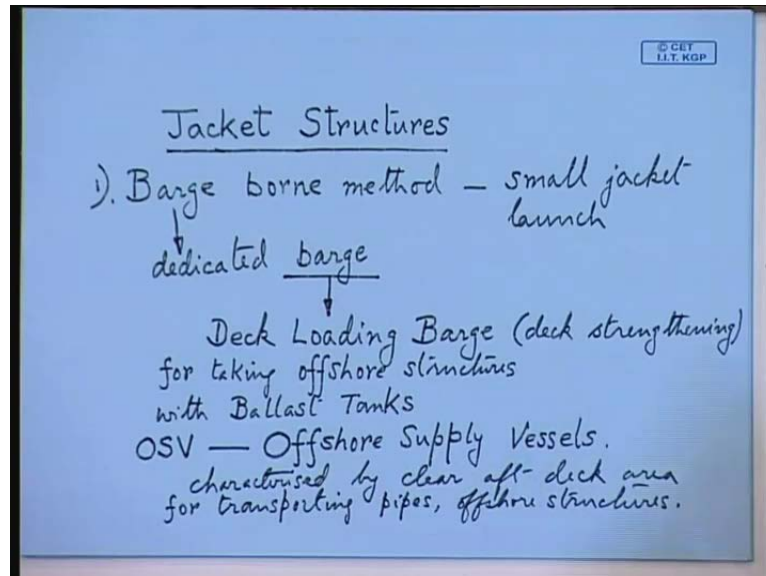 © CET
I.I.T. KGP
Jacket Structures
1). Barge borne method – small jacket
launch
dedicated barge
Deck Loading Barge (deck strengthening)
for taking offshore structures
with Ballast Tanks
OSV — Offshore Supply Vessels.
characterised by clear aft-deck area
for transporting pipes, offshore structures.